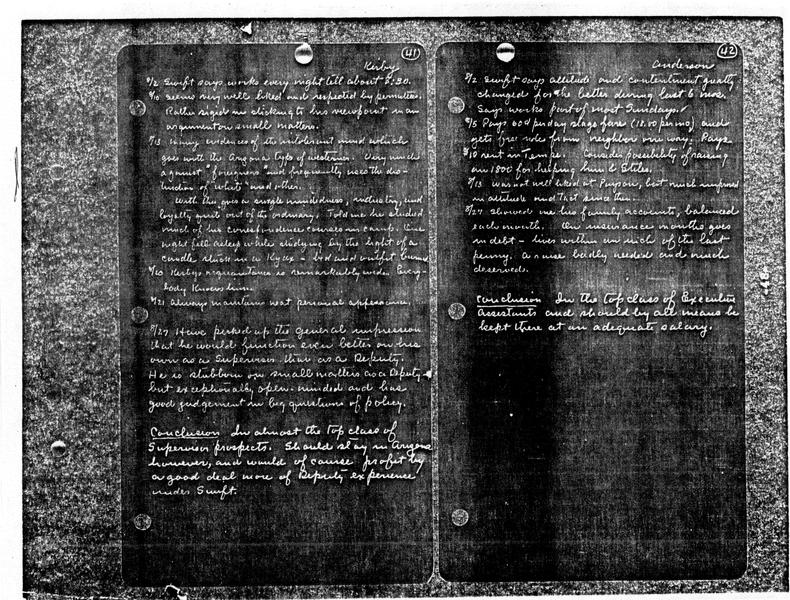 41
Kerby
8/2 Swift says works every night till about 9:30.
8/10 Seems very well liked and respected by permittees.
Rather rigid in clinging to his viewpoint in an
argument on small matters.
8/13 Many evidences of the intolerant mind which
goes with the Arizona type of westerner. Very much
against foreigners and frequently uses the dis-
tinction of "white" and other.
With this goes a single mindedness, industry, and
loyalty quite out of the ordinary. Told me he studied
much of his correspondence courses in camp. One
night fell asleep while studying by the light of a
candle stuck in a Kyax - bed and outfit burned
8/20 Kerby's acquaintance is remarkably wide. Every-
body knows him.
8/21 Always maintains neat personal appearance.
8/27 Have picked up the general impression
that he would function even better on his
own as a Supervisor than as a Deputy.
He is stubborn on small matters as a Deputy
but exceptionally open-minded and has
good judgement in big questions of policy.
Conclusion In almost the top class of
Supervisor prospects. Should stay in Arizona
however, and would of course profit by
a good deal more of Deputy experience
under Swift.
42
Anderson
8/2 Swift says attitude and contentment greatly
changed for the better during last 6 mos.
Says works part of most Sundays.
8/5 Pays 60¢ per day stage fare (18.00 per mo) and
gets free ride from neighbor one way. Pays
rent in Tempe. Consider possibility of raising
an 1800 for helping him &
8/13 Was not well liked at Payson, but much improved
in attitude and tact since then.
8/27 Showed me his family accounts, balanced
each month. On insurance months goes
in debt - lives within an inch of the last
penny. A raise badly needed and much
deserved.
Conclusion In the top class of Executive
Assistants and should by all means be
kept there at an adequate salary.